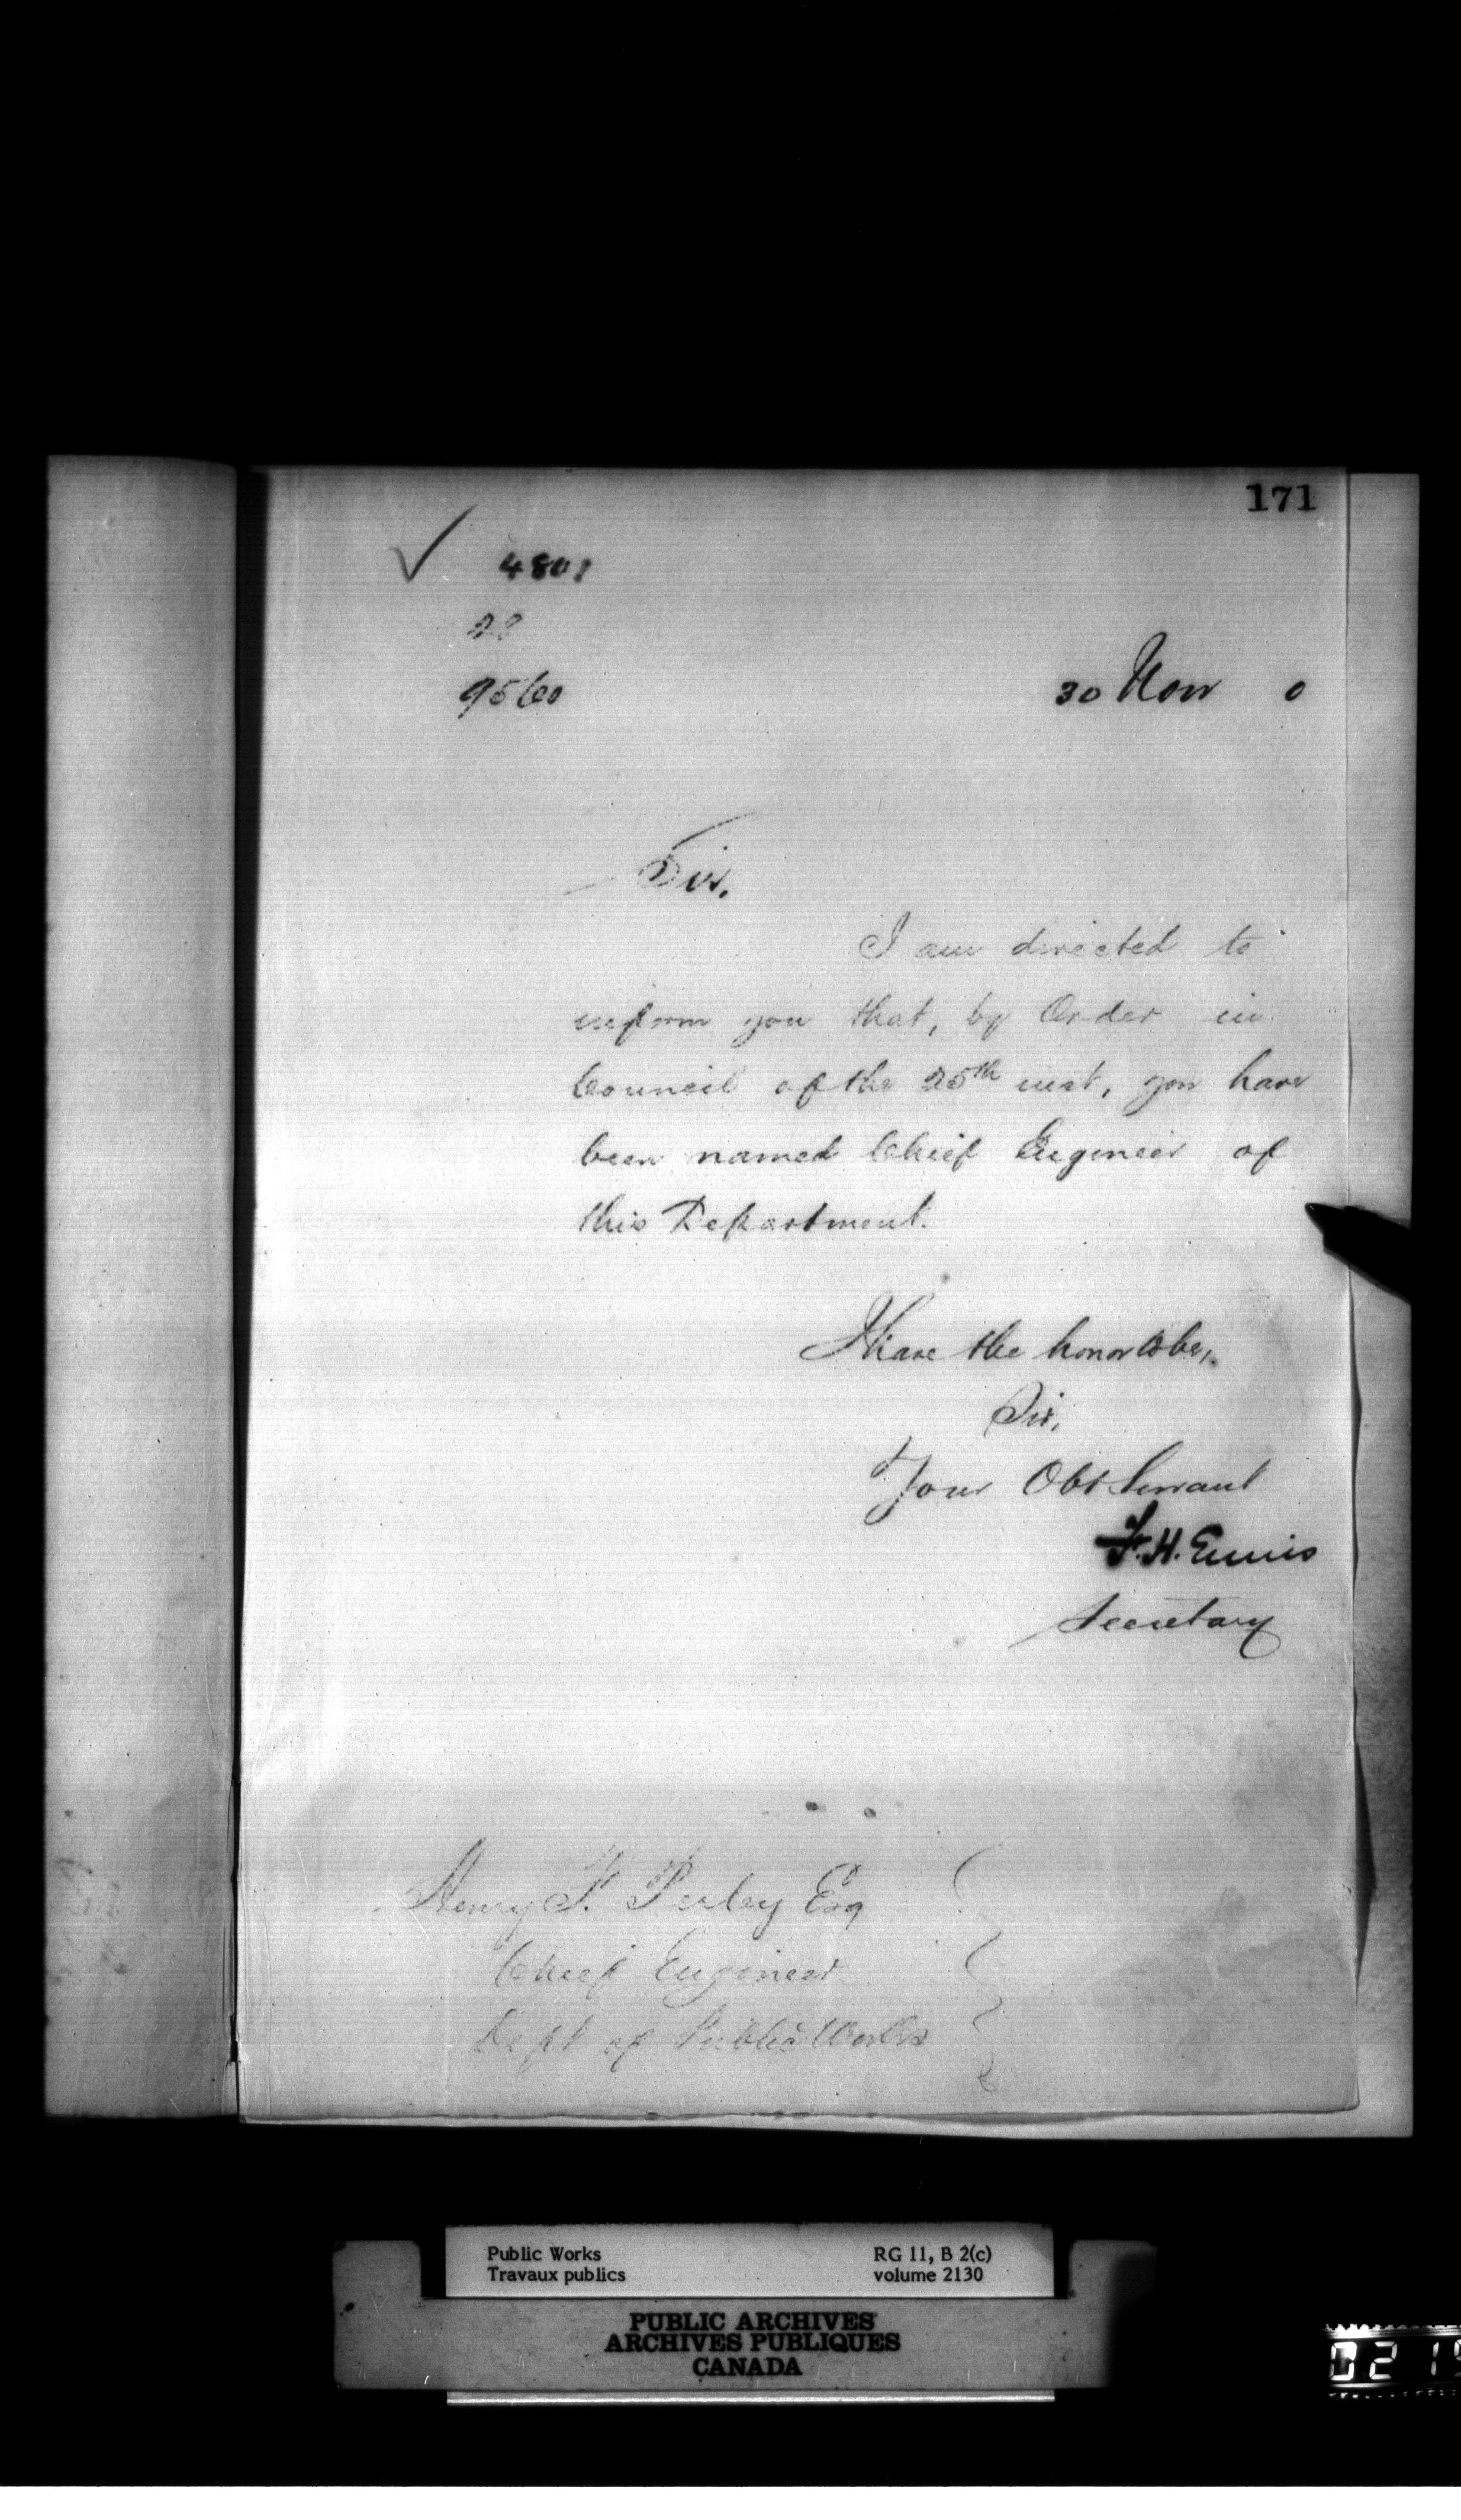 171
✓ 4801
28
9560
30 Nov 0
Sir,
I am directed to
inform you that, by Order in
Council of the 25th inst, you have
been named Chief Engineer of
this Department.
I have the honor to be,
Sir,
Your Obt Servant
F. H. Ennis
Secretary
Henry F. Perley Esq
Chief Engineer
Dept of Public Works
Public Works
Travaux publics
RG 11, B 2(c)
volume 2130
PUBLIC ARCHIVES
ARCHIVES PUBLIQUES
CANADA